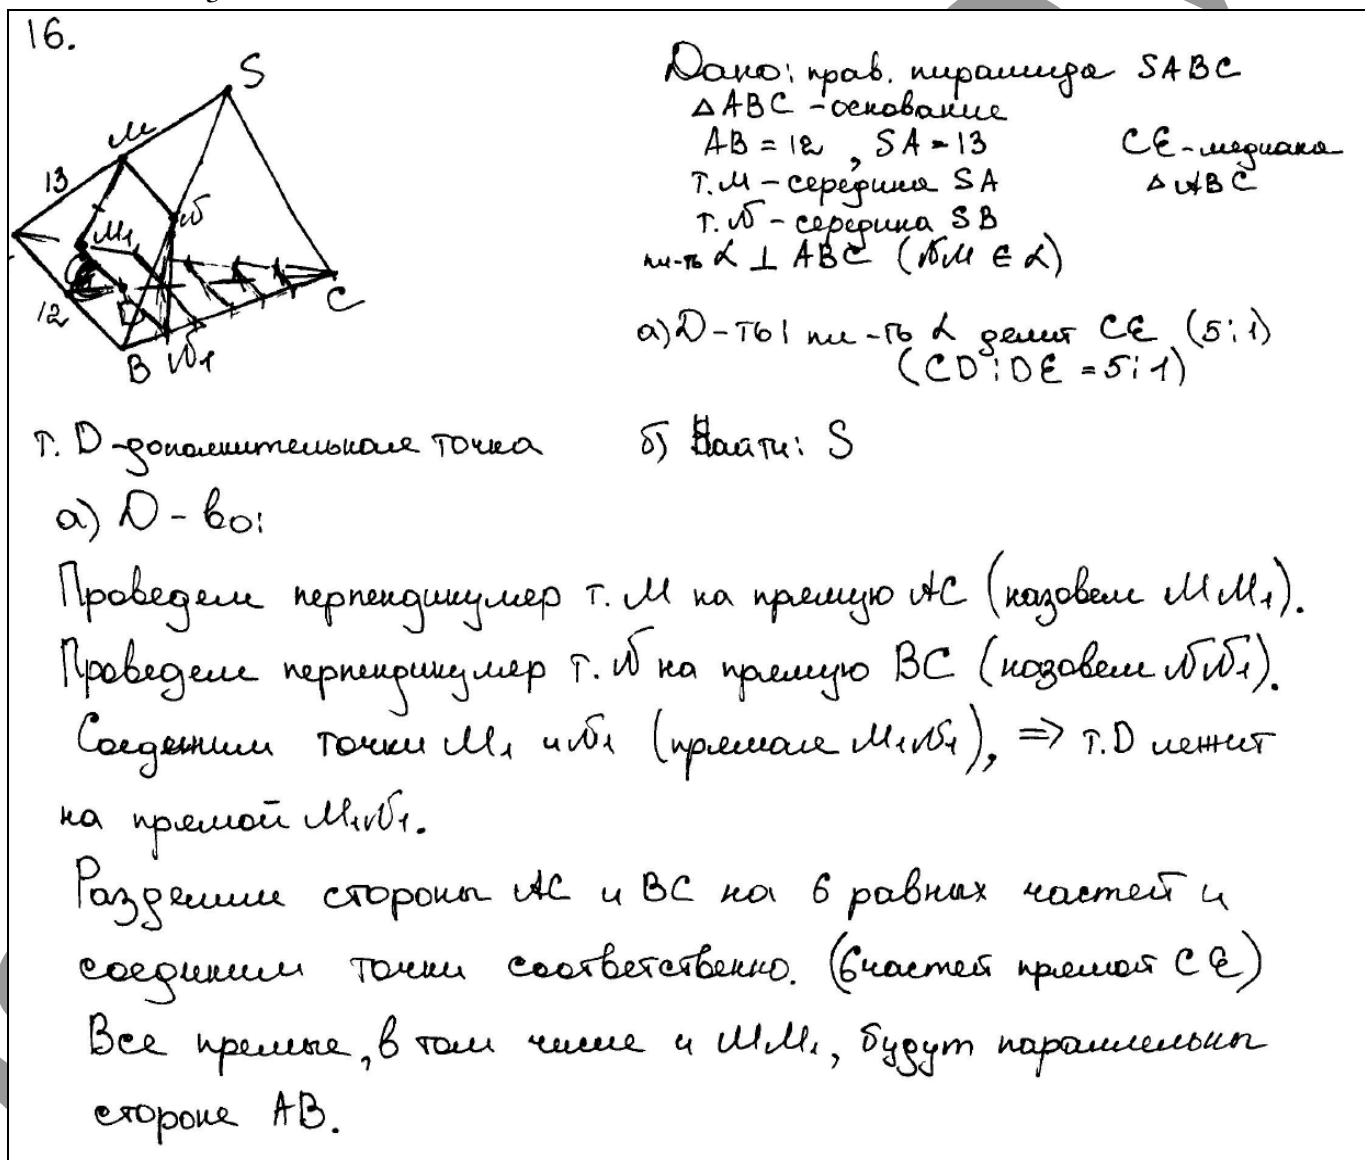 16.
S
M
13
N
M₁
12
D
C
B N₁
Дано: прав. пирамида SABC
△ABC - основание
AB = 12, SA = 13 CE - медиана
т. M - середина SA △ABC
т. N - середина SB
пл-ть α ⊥ ABC (NM ∈ α)
а) Д-ть: пл-ть α делит CE (5:1)
(CD:DE = 5:1)
т. D - дополнительная точка б) Найти: S
а) Д-во:
Проведем перпендикуляр т. M на прямую AC (назовем MM₁).
Проведем перпендикуляр т. N на прямую BC (назовем NN₁).
Соединим точки M₁ и N₁ (прямая M₁N₁), => т. D лежит
на прямой M₁N₁.
Разделим стороны AC и BC на 6 равных частей и
соединим точки соответственно. (6 частей прямой CE)
Все прямые, в том числе и MM₁, будут параллельны
стороне AB.